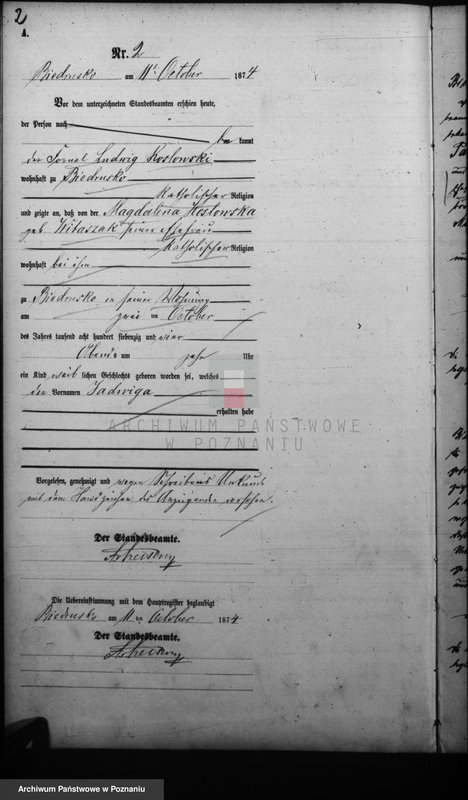 2
A.
Nr. 2
Biedrusko am 11ᵗ October 1874
Vor dem unterzeichneten Standesbeamten erschien heute,
der Person nach be kannt
der Fornal Ludwig Koslowski
wohnhaft zu Biedrusko
katholischer Religion
und zeigte an, daß von der Magdalena Koslowska
geb. Witaszak seiner Ehefrau
katholischer Religion
wohnhaft bei ihm
zu Biedrusko in seiner Wohnung
am zwei ten October
des Jahres tausend acht hundert siebenzig und vier
Abends um zehn Uhr
ein Kind weib lichen Geschlechts geboren worden sei, welches
den Vornamen Jadwiga
erhalten habe
ARCHIWUM PAŃSTWOWE
W POZNANIU
Vorgelesen, genehmigt und wegen Schreibens Unkunde
mit dem Handzeichen des Anzeigenden versehen.
Der Standesbeamte.
Die Uebereinstimmung mit dem Hauptregister beglaubigt
Biedrusko am 11 ten October 1874
Der Standesbeamte.
Archiwum Państwowe w Poznaniu